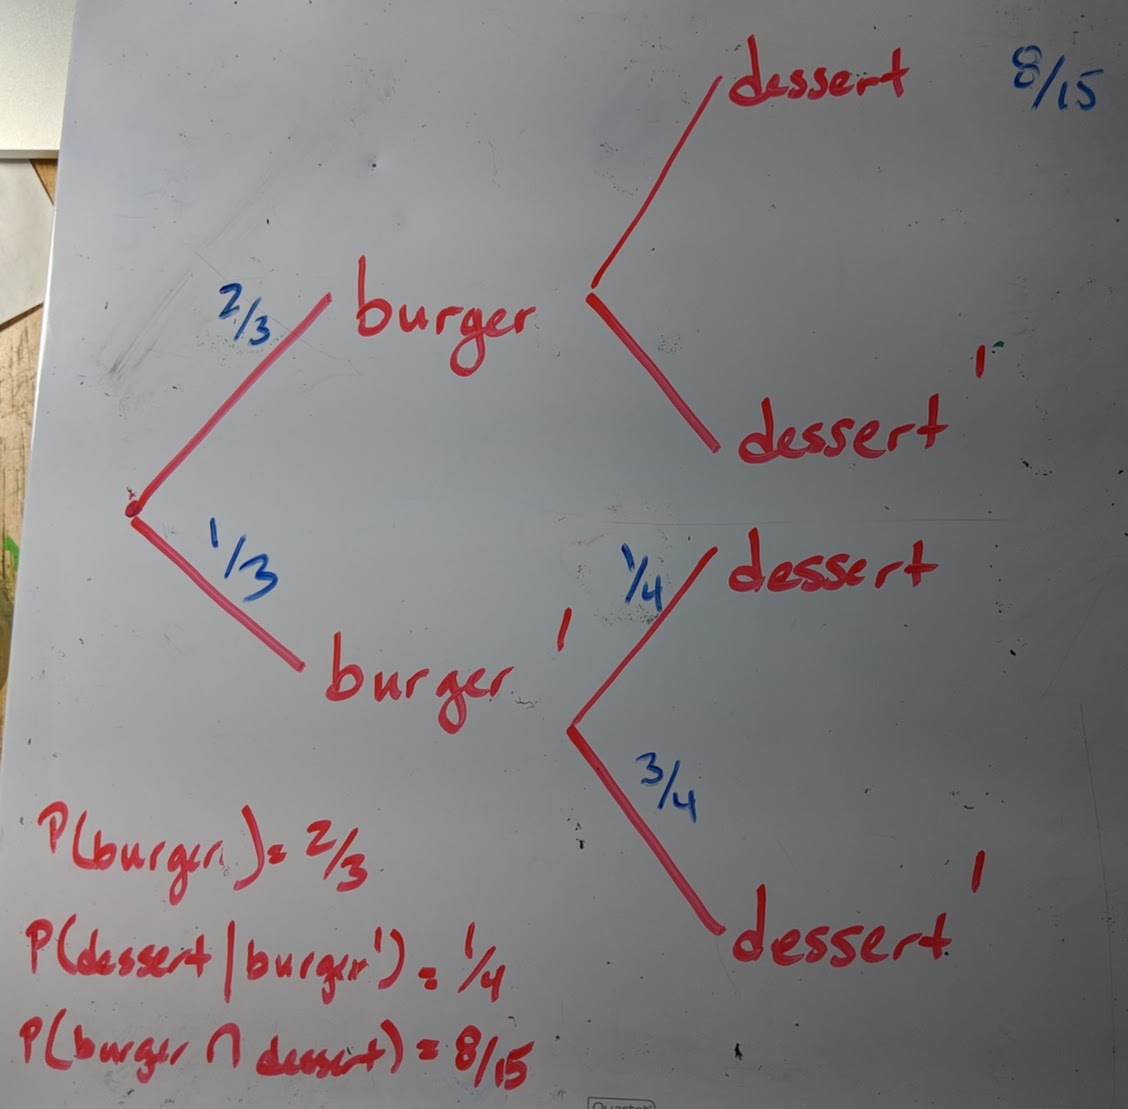 dessert 8/15
2/3 burger
dessert'
1/3
1/4 dessert
burger'
3/4
dessert'
P(burger) = 2/3
P(dessert | burger') = 1/4
P(burger ∩ dessert) = 8/15
Quartet